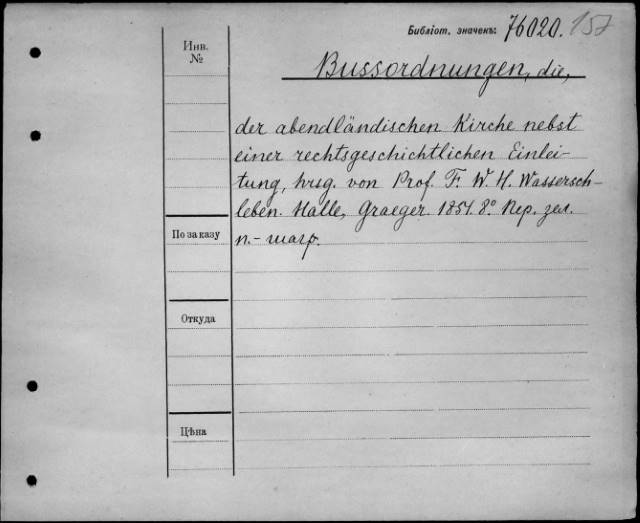 Библіот. значекъ: 76020. 157
Инв.
№
Bussordnungen, die,
der abendländischen Kirche nebst
einer rechtsgeschichtlichen Einlei-
tung, hrsg. von Prof. F. W. H. Wassersch-
leben. Halle, Graeger. 1851. 8.º Пер. зел.
п.-шагр.
По заказу
Откуда
Цѣна